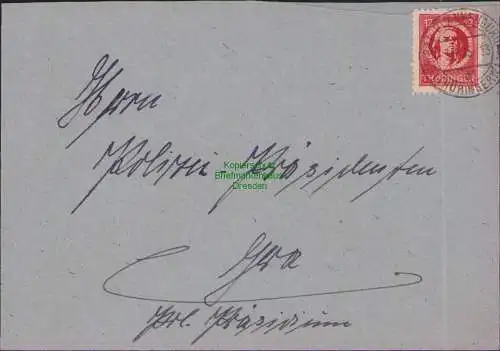 12
THÜRINGEN
Herrn
Polizei-Präsidenten
Kopierschutz
Briefmarkenhaus
Dresden
Gera
Pol. Präsidium